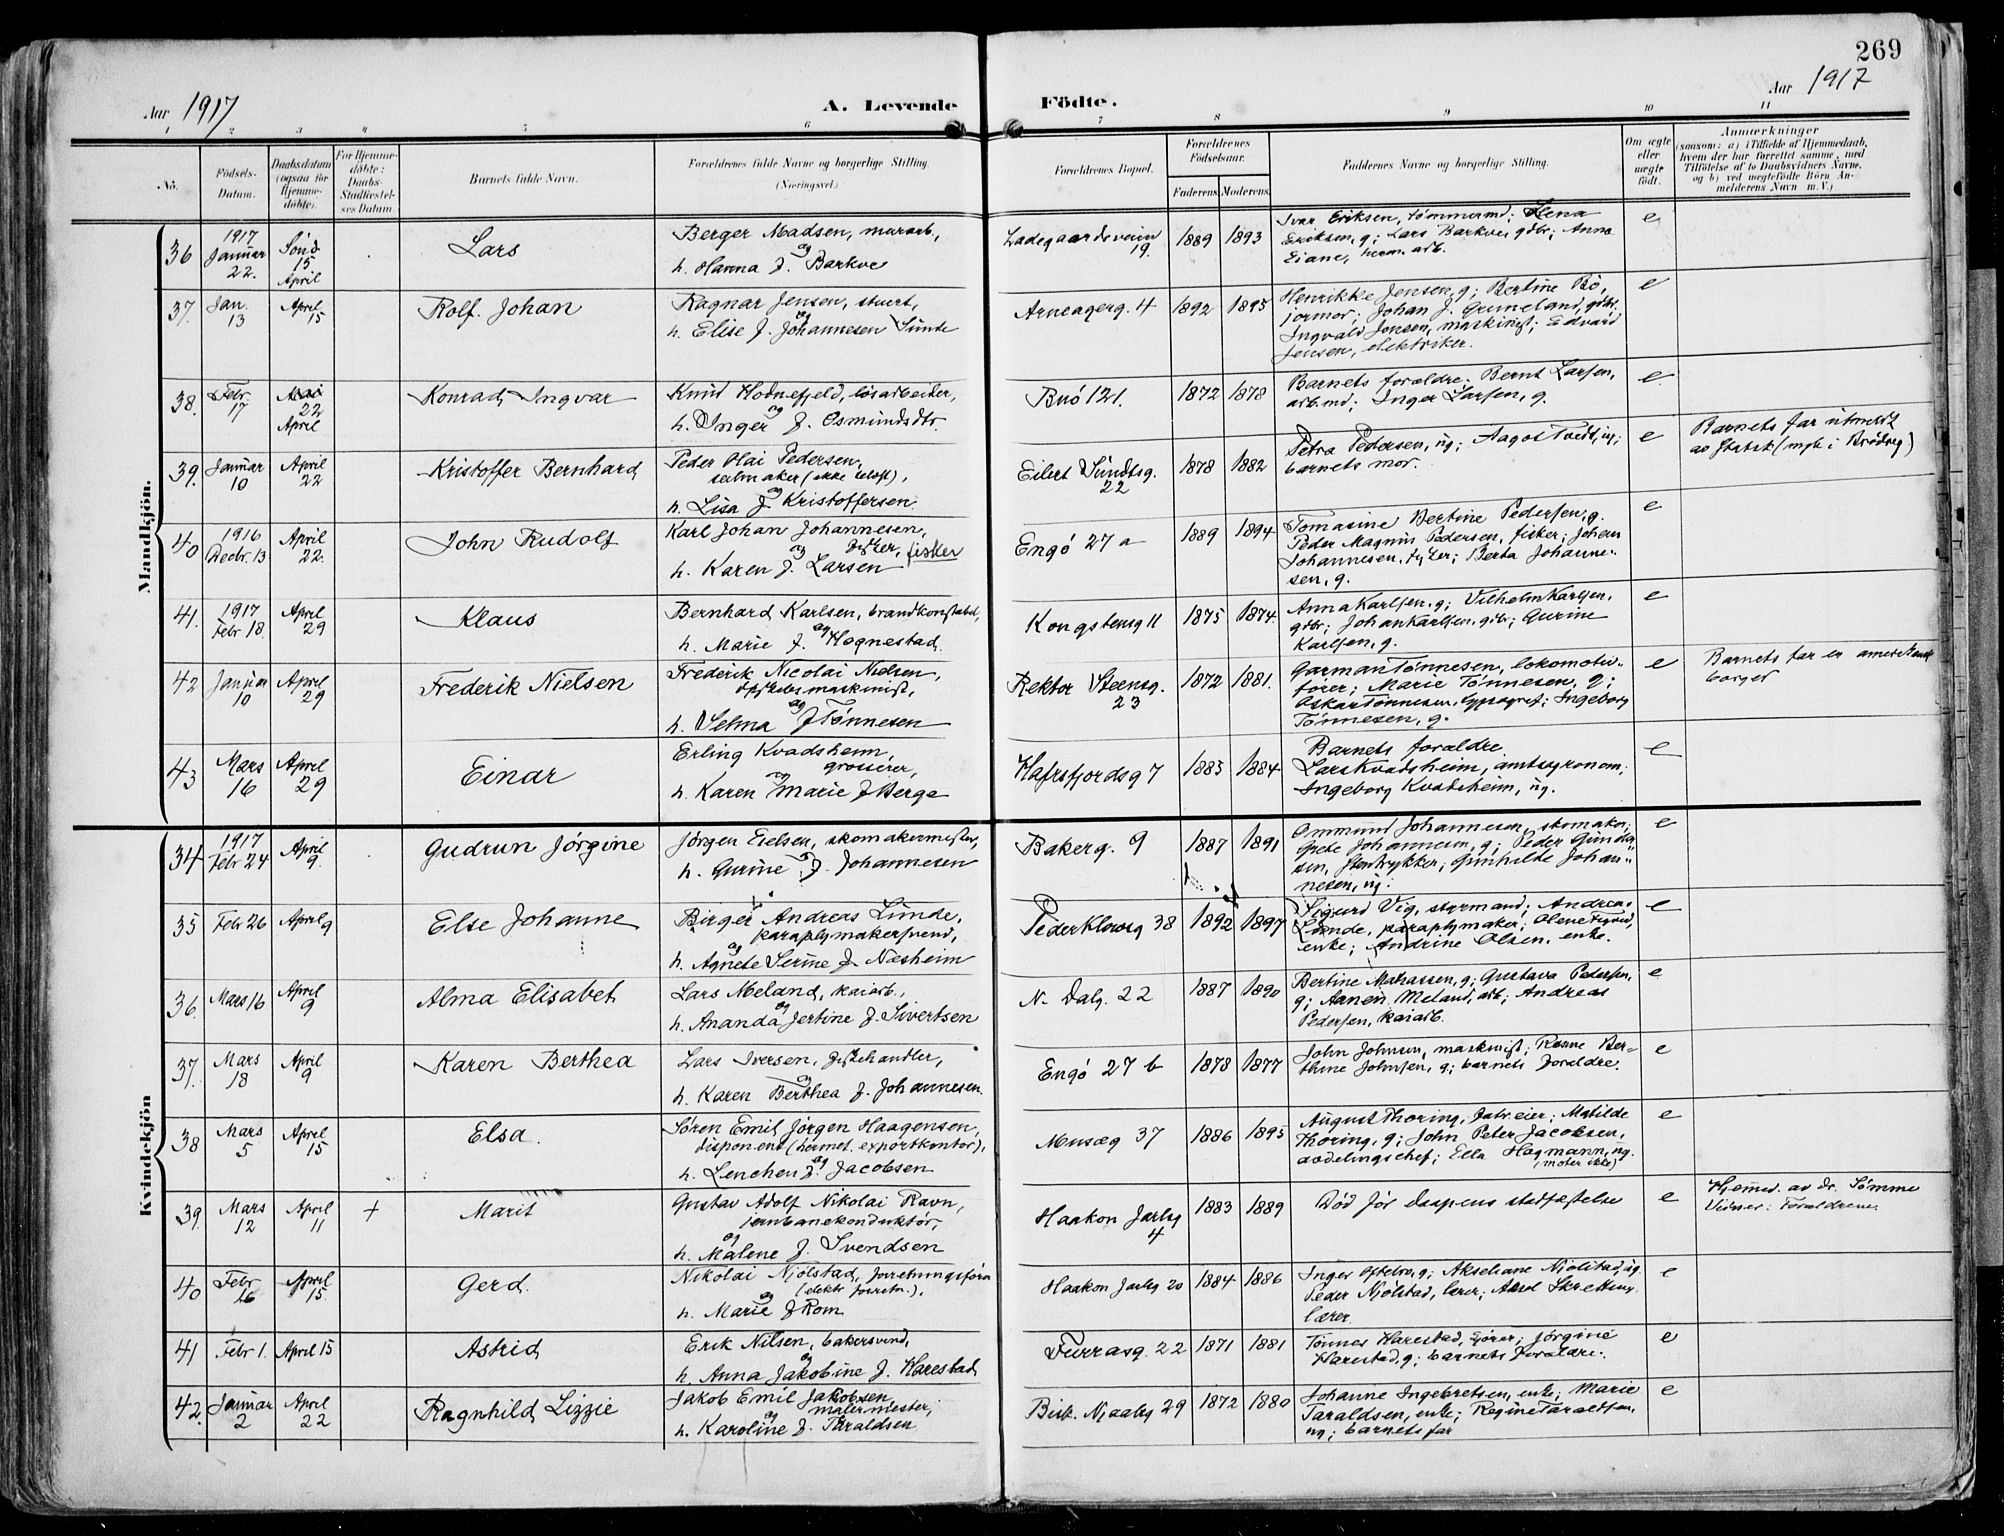 269
Aar 1917
A. Levende Födte.
Aar 1917
1 2 3 4 5 6 7 8 9 10 11
No.
Födsels-
Datum.
Daabsdatum
(ogsaa for
Hjemme-
döbte).
For Hjemme-
döbte:
Daabs-
Stadfæstel-
ses Datum.
Barnets fulde Navn.
Forældrenes fulde Navne og borgerlige Stilling.
(Næringsvei.)
Forældrenes Bopæl.
Forældrenes
Födselsaar.
Faderens. Moderens.
Faddernes Navne og borgerlige Stilling.
Om ægte
eller
uægte
födt.
Anmærkninger
(saasom: a) i Tilfælde af Hjemmedaab,
hvem der har forrettet samme, med
Tilföielse af to Daabsvidners Navne,
og b) ved uægtefödte Börn An-
melderens Navn m. V.)
Mandkjön.
36 1917 Januar 22. Sönd. 15 April Lars
Berger Madsen, murarb,
og
h. Hanna f. Barkve
Ladegaardsveien 19. 1889 1893
Ivar Eriksen, tømmermd; Lena
Eriksen, g; Lars Barkve, gdbr; Anna
Eiane, herm. arb.
e
37. Jan. 13 April 15 Rolf Johan
Ragnar Jensen, stuert,
og
h. Elise f. Johannesen Sunde
Arneagerg. 4 1892 1895
Henrikke Jensen, g; Bertine Bö,
jormor; Johan J. Gruneland, gdbr,
Ingvald Jensen, maskinist; Edvard
Jensen, elektriker.
e
38. Febr. 17 22 April Konrad Ingvar
Knud Hodnefjeld, lösarbeider,
og
h. Inger f. Osmundsdtr.
Buö 121. 1872 1878
Barnets forældre; Bernt Larsen,
arb.md; Inger Larsen, g.
e
39. Januar 10 April 22 Kristoffer Bernhard
Peder Olai Pedersen,
seilmaker (ikke statsk),
og
h. Lisa f. Kristoffersen
Eilert Sundtsg. 22 1878 1882
Petra Pedersen, ug; Aagot Tvedt, ug;
barnets mor.
e
Barnets far utmeldt
av Statsk (mgt i Brødreg)
40 1916 Decbr. 13 April 22. John Rudolf
Karl Johan Johannesen,
og fisker
h. Karen f. Larsen
Engö 27 a 1889 1894
Tomasine Bertine Pedersen, g.
Peder Magnus Pedersen, fisker; Johan
Johannesen, fyrbøter; Berta Johanne-
sen, g.
e
41. 1917 Febr 18 April 29 Klaus
Bernhard Karlsen, brandkonstabel,
og
h. Marie f. Hognestad.
Kongstensg 11 1875 1874
Anna Karlsen, g; Vilhelm Karlsen,
gdbr; Johan Karlsen, gdbr; Gurine
Karlsen, g.
e
42 Januar 10 April 29 Frederik Nielsen
Frederik Nicolai Nielsen,
dpskibsmaskinist,
og
h. Selma f Tönnesen
Rektor Steensg. 23 1872 1881.
Garman Tönnesen, lokomotiv-
förer; Marie Tönnesen, g;
Oskar Tönnesen, typograf; Ingeborg
Tönnesen, g.
e
Barnets far er amerikansk
borger
43 Mars 16 April 29 Einar
Erling Kvadsheim,
grosserer,
og
h. Karen Marie f Berge
Hafrsfjordsg 7 1883 1884
Barnets forældre.
Lars Kvadsheim, amtsagronom;
Ingeborg Kvadsheim, ug.
e
Kvindekjön
34 1917 Febr 24 April 9. Gudrun Jörgine
Jörgen Eielsen, skomakermester,
og
h. Gurine f. Johannesen
Bakerg. 9 1887 1891
Ommund Johannesen, skomaker;
Grete Johannesen, g; Peder Gundersen
, Stentrykker; Gunhilde Johan-
nesen, ug.
e
35 Febr 26 April 9 Else Johanne
Birger Andreas Lunde,
paraplymakersvend,
og
h. Agnete Serine f. Næsheim
Peder Klowsg 38 1892 1897
Sigurd Vig, styrmand; Andreas
Lunde, paraplymaker;
enke; Andrine Olsen, enke.
e
36. Mars 16 April 9 Alma Elisabet
Lars Meland, kaiarb.,
og
h. Ananda Jertine f. Sivertsen
N. Dalg. 22 1887 1890
Bertine Mathassen, g; Gustava Pedersen,
g; Aanen Meland, arb; Andreas
Pedersen, kaiarb.
e
37. Mars 18 April 9 Karen Berthea
Lars Iversen, fiskehandler,
og
h. Karen Berthea f. Johannesen.
Engö 27 b 1878 1877
John Johnsen, maskinist; Rönne Ber-
thine Johnsen, g; barnets Forældre.
e
38 Mars 5 April 15 Elsa.
Sören Emil Jörgen Haagensen,
disponent (hermet. exportkontor),
og
h. Lenchen f. Jacobsen
Musæg 37 1886 1895
August Thoring, fabr.eier; Matilde
Thoring, g; John Peter Jacobsen,
avdelingschef; Ella Hagmann, ug.
(møter ikke)
e
39. Mars 12 April 11 + Marit
Gustav Adolf Nikolai Ravn,
jernbanekonduktör,
og
h. Malene f. Svendsen
Haakon Jarlsg 4 1883 1889
Död för daapens stadfæstelse
e
Hjemmed. av dr. Sömme
Vidner: Forældrene
40 Febr 16 April 15. Gerd.
Nikolai Njölstad, forretningsförer
(elektr forretn.),
og
h. Marie f Rom
Haakon Jarlsg 20 1884 1886
Inger Oftebro, g; Akseliane Njölstad, ug.
Peder Njölstad, lærer; Aksel Skretting,
lærer.
e
41 Febr 1. April 15 Astrid
Erik Nilsen, bakersvend,
og
h. Anna Jakobine f. Harestad
Furrasg. 22 1871 1881
Tönnes Harestad, kjører; Jörgine
Harestad, g; barnets Forældre.
e
42. Januar 2 April 22 Ragnhild Lizzie
Jakob Emil Jakobsen
malermester,
og
h. Karoline f. Taraldsen
Bisk. Njaalsg 29 1872 1880
Johanne Ingebretsen, enke; Marie
Taraldsen, enke; Regine Taraldsen,
ug; barnets far
e